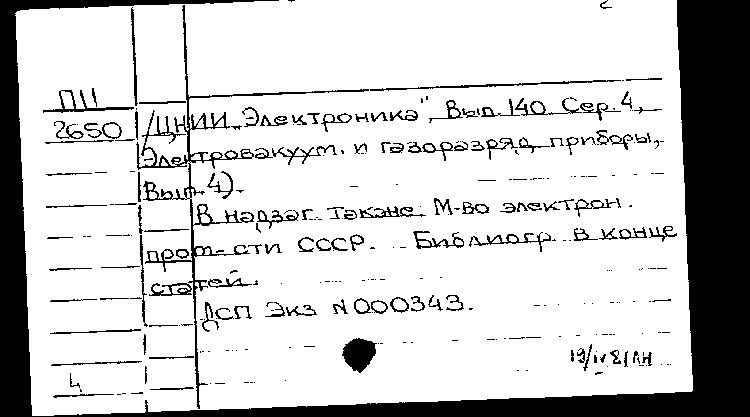 П11
2650
/ЦНИИ "Электроника", Вып. 140. Сер. 4,
Электровакуум. и газоразряд. приборы,
Вып. 4).
В надзаг. также: М-во электрон.
пром-сти СССР. Библиогр. в конце
статей.
ДСП Экз N000343.
4